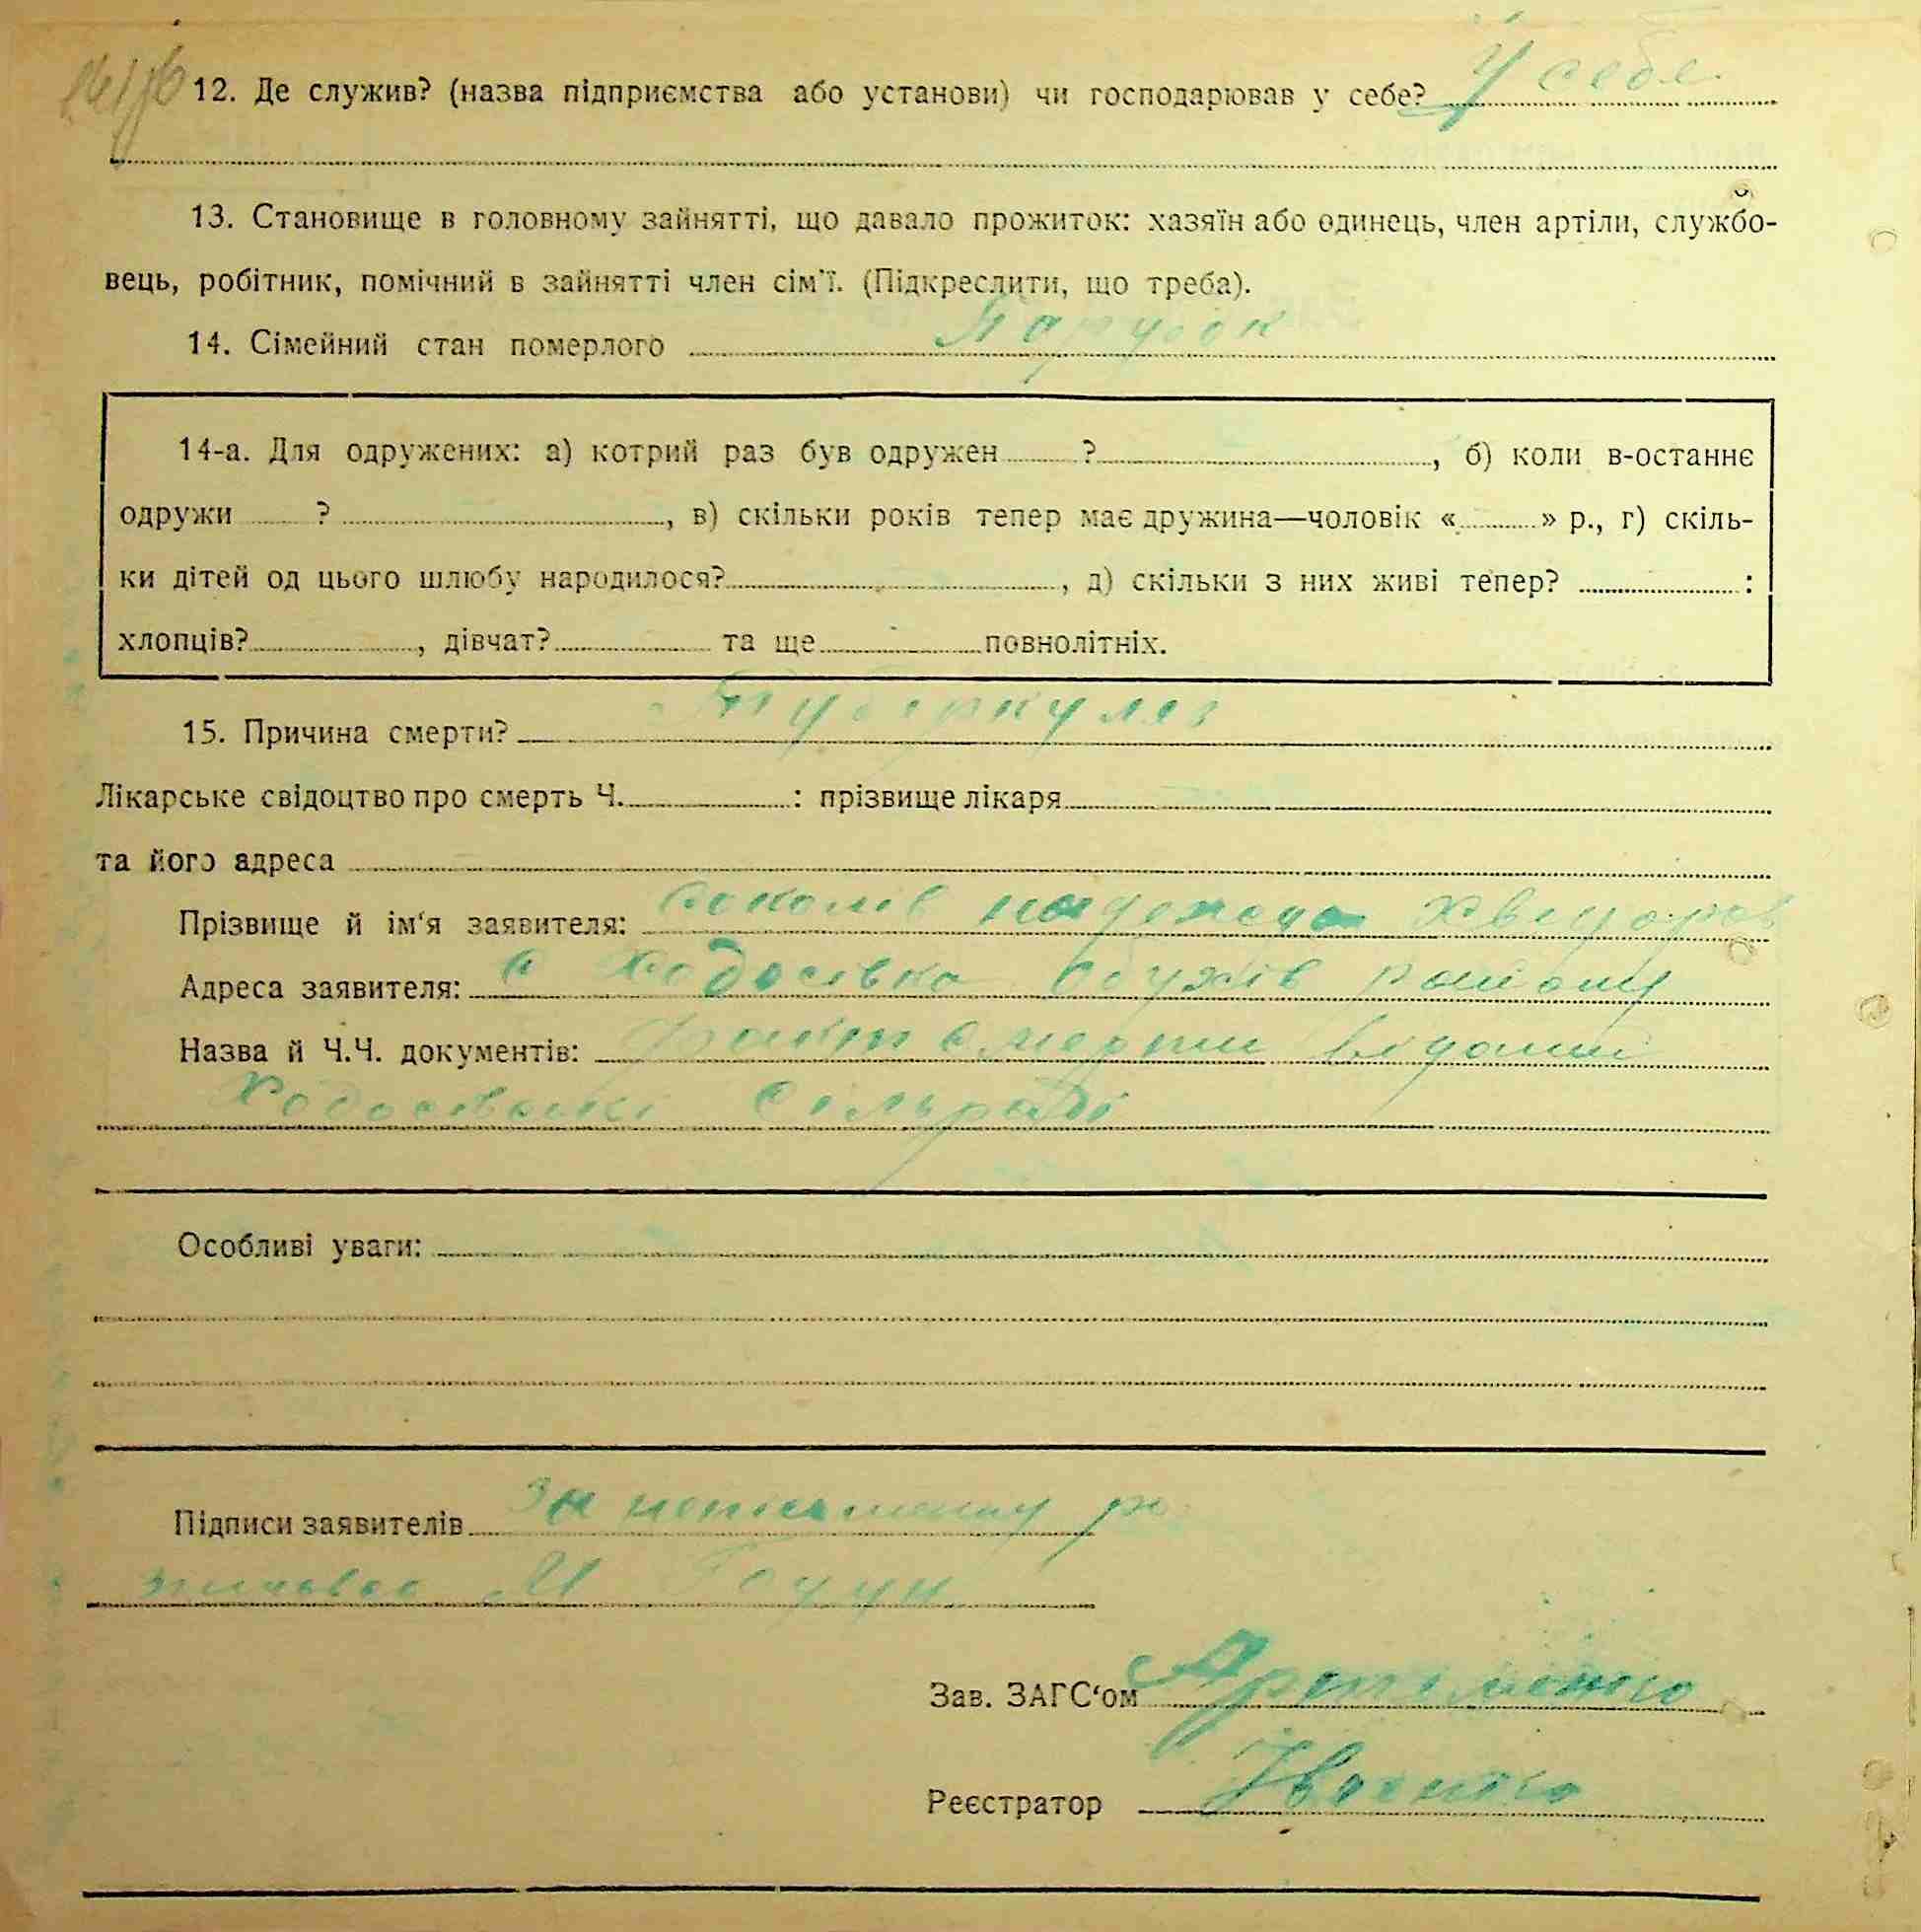 12. Де служив? (назва підприємства або установи) чи господарював у себе? У себе
13. Становище в головному зайнятті, що давало прожиток: хазяїн або одинець, член артіли, службо-
вець, робітник, помічний в зайнятті член сім'ї. (Підкреслити, що треба).
14. Сімейний стан померлого Парубок
14-а. Для одружених: а) котрий раз був одружен ? , б) коли в-останнє
одружи ? , в) скільки років тепер має дружина—чоловік « » р., г) скіль-
ки дітей од цього шлюбу народилося? , д) скільки з них живі тепер? :
хлопців? , дівчат? та ще повнолітніх.
15. Причина смерти? Туберкулез
Лікарське свідоцтво про смерть Ч. : прізвище лікаря
та його адреса
Прізвище й ім'я заявителя: Соколів Надежда
Адреса заявителя: с Ходосівка Обухів району
Назва й Ч.Ч. документів: факт смерти
Ходосівскі Сільраді
Особливі уваги:
Підписи заявителів За неписьменну ро
М
Зав. ЗАГС'ом
Реєстратор